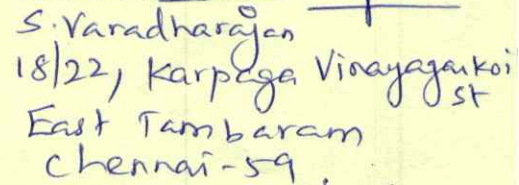 S. Varadharajan
18/22, Karpaga Vinayagarkoi
st
East Tambaram
Chennai-59.